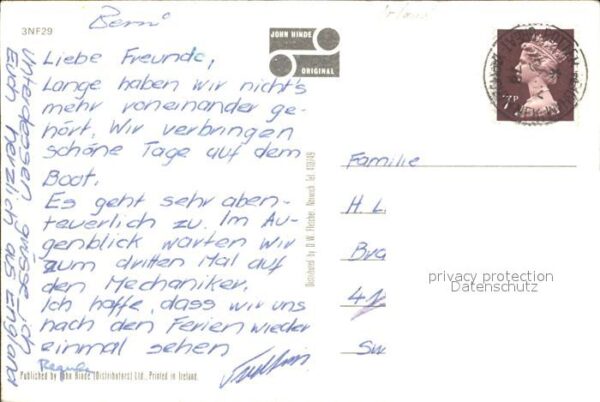 3NF29
Berni
JOHN HINDE
ORIGINAL
Liebe Freunde,
Lange haben wir nichts
mehr voneinander ge-
hört. Wir verbringen
schöne Tage auf dem
Boot.
Es geht sehr aben-
teuerlich zu. Im Au-
genblick warten wir
zum dritten Mal auf
den Mechaniker.
Ich hoffe, dass wir uns
nach den Ferien wieder
einmal sehen
Unterdessen grüsse ich
Euch herzlich aus England
Published by John Hinde (Distributors) Ltd., Printed in Ireland.
Distributed by D. W. Fletcher, Norwich Tel 413149
7P
Familie
H. L.
Bra
41
Sw
privacy protection
Datenschutz